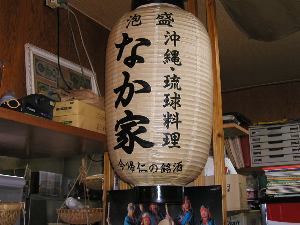 泡盛
沖縄・琉球料理
なか家
今帰仁の銘酒